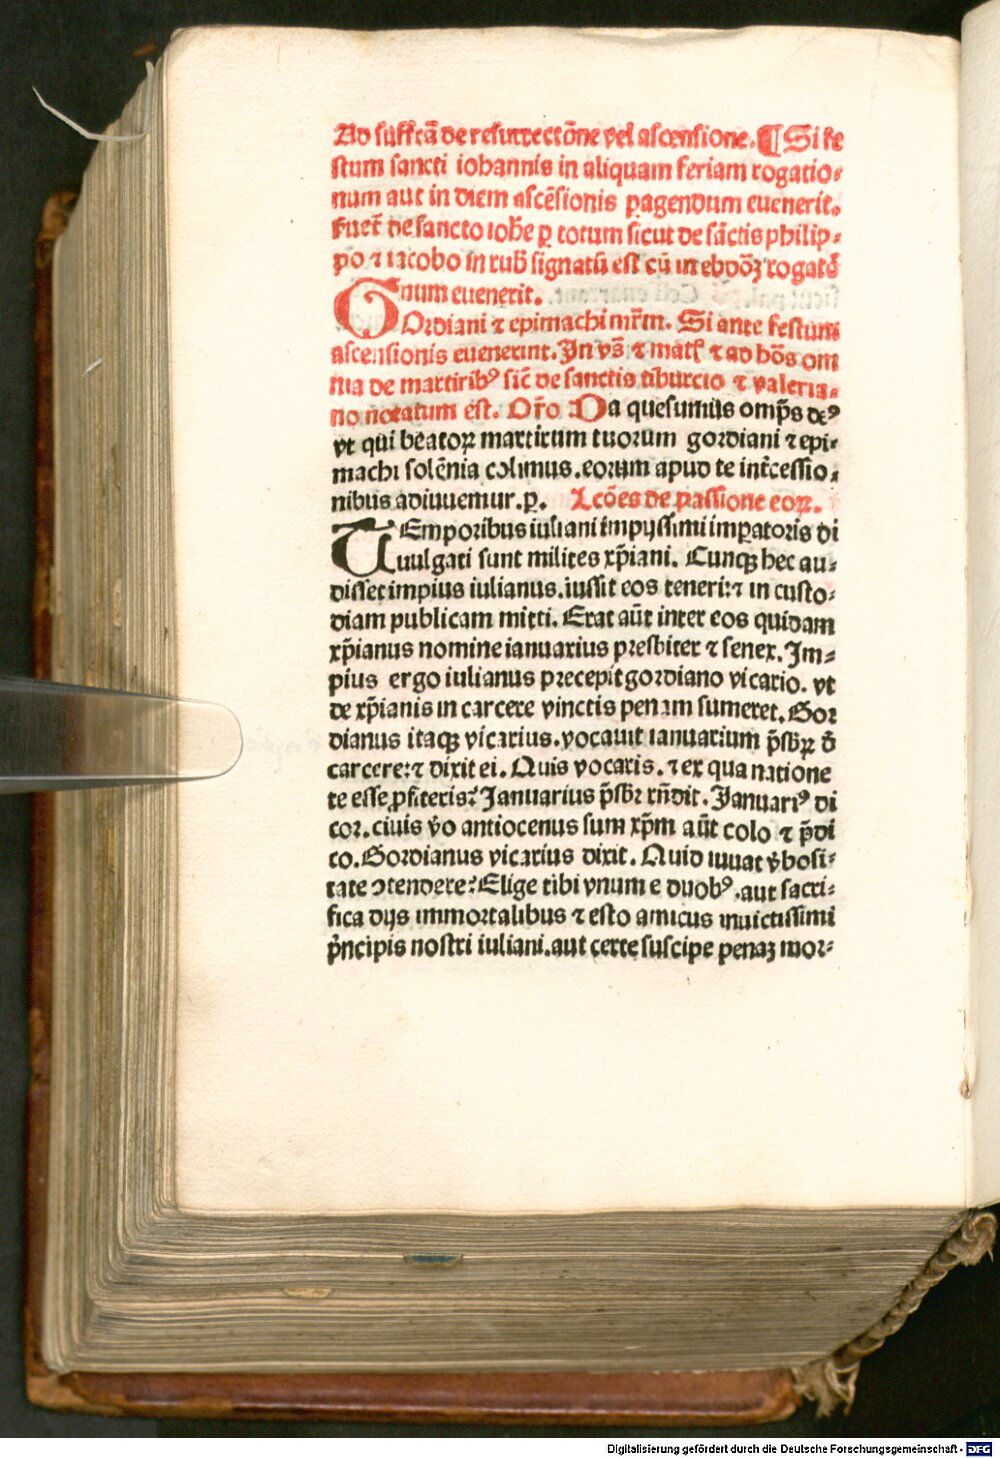 Ad suffrā de resurrectōne vel ascensione. ¶ Si fe
stum sancti iohannis in aliquam feriam rogatio⸗
num aut in diem ascēsionis pagendum euenerit.
fuet̄ de sancto ioh̄e ꝑ totum sicut de sāctis philip⸗
po ⁊ iacobo in rub̄ signatū est cū in ebdōꝫ rogatō
num euenerit.
GOrdiani ⁊ epimachi mr̄m. Si ante festum
ascensionis euenerint. In vs̄ ⁊ mat̄ ⁊ ad hōs om
nia de martiribꝰ sic̄ de sanctis tiburcio ⁊ valeria⸗
no notatum est. Or̄o Da quesumus omp̄s deꝰ
vt qui beatoꝝ martirum tuorum gordiani ⁊ epi⸗
machi solēnia colimus. eorum apud te int̄cessio⸗
nibus adiuuemur. ꝑ. Lcōes de passione eoꝝ.
TEmporibus iuliani impijssimi imꝑatoris di
uulgati sunt milites xp̄iani. Cunqꝫ hec au⸗
disset impius iulianus. iussit eos teneri: ⁊ in custo⸗
diam publicam mitti. Erat aūt inter eos quidam
xp̄ianus nomine ianuarius presbiter ⁊ senex. Im⸗
pius ergo iulianus precepit gordiano vicario. vt
de xp̄ianis in carcere vinctis penam sumeret. Gor
dianus itaqꝫ vicarius. vocauit ianuarium p̄sbꝝ d̄
carcere: ⁊ dixit ei. Quis vocaris. ⁊ ex qua natione
te esse ꝓfiteris? Januarius p̄sbr̄ rn̄dit. Januariꝰ di
cor. ciuis v̄o antiocenus sum xp̄m aūt colo ⁊ p̄di
co. Gordianus vicarius dixit. Quid iuuat v̄bosi⸗
tate ↄtendere? Elige tibi vnum e duobꝰ. aut sacri⸗
fica dijs immortalibus ⁊ esto amicus inuictissimi
p̄ncipis nostri iuliani. aut certe suscipe penaꝫ mor⸗
Digitalisierung gefördert durch die Deutsche Forschungsgemeinschaft - DFG